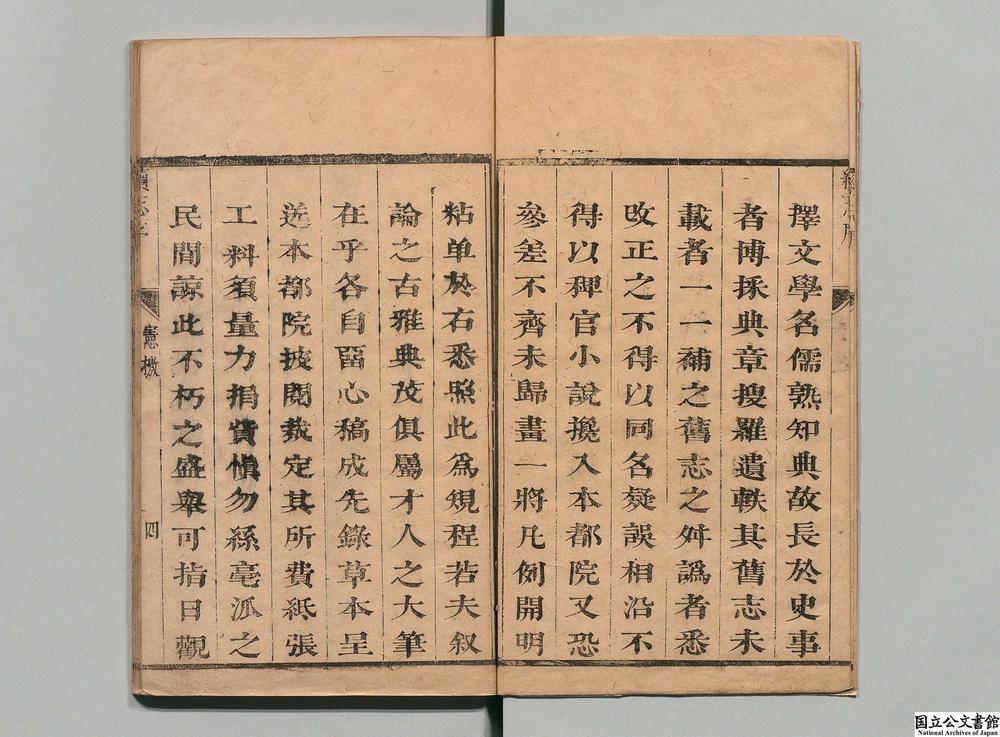 擇文學名儒熟知典故長於史事
者博採典章搜羅遺軼其舊志未
載者一一補之舊志之舛譌者悉
攺正之不得以同名疑誤相沿不
得以稗官小說攙入本都院又恐
參差不齊未歸畫一將凡例開明
粘单於右悉照此爲䂓程若夫叙
論之古雅典茂俱屬才人之大筆
在乎各自畱心稿成先錄草本呈
送本都院披閱裁定其所費紙張
工料須量力捐貲愼勿絲毫泒之
民間諒此不朽之盛舉可指日觀
憲檄
四
国立公文書館
National Archives of Japan